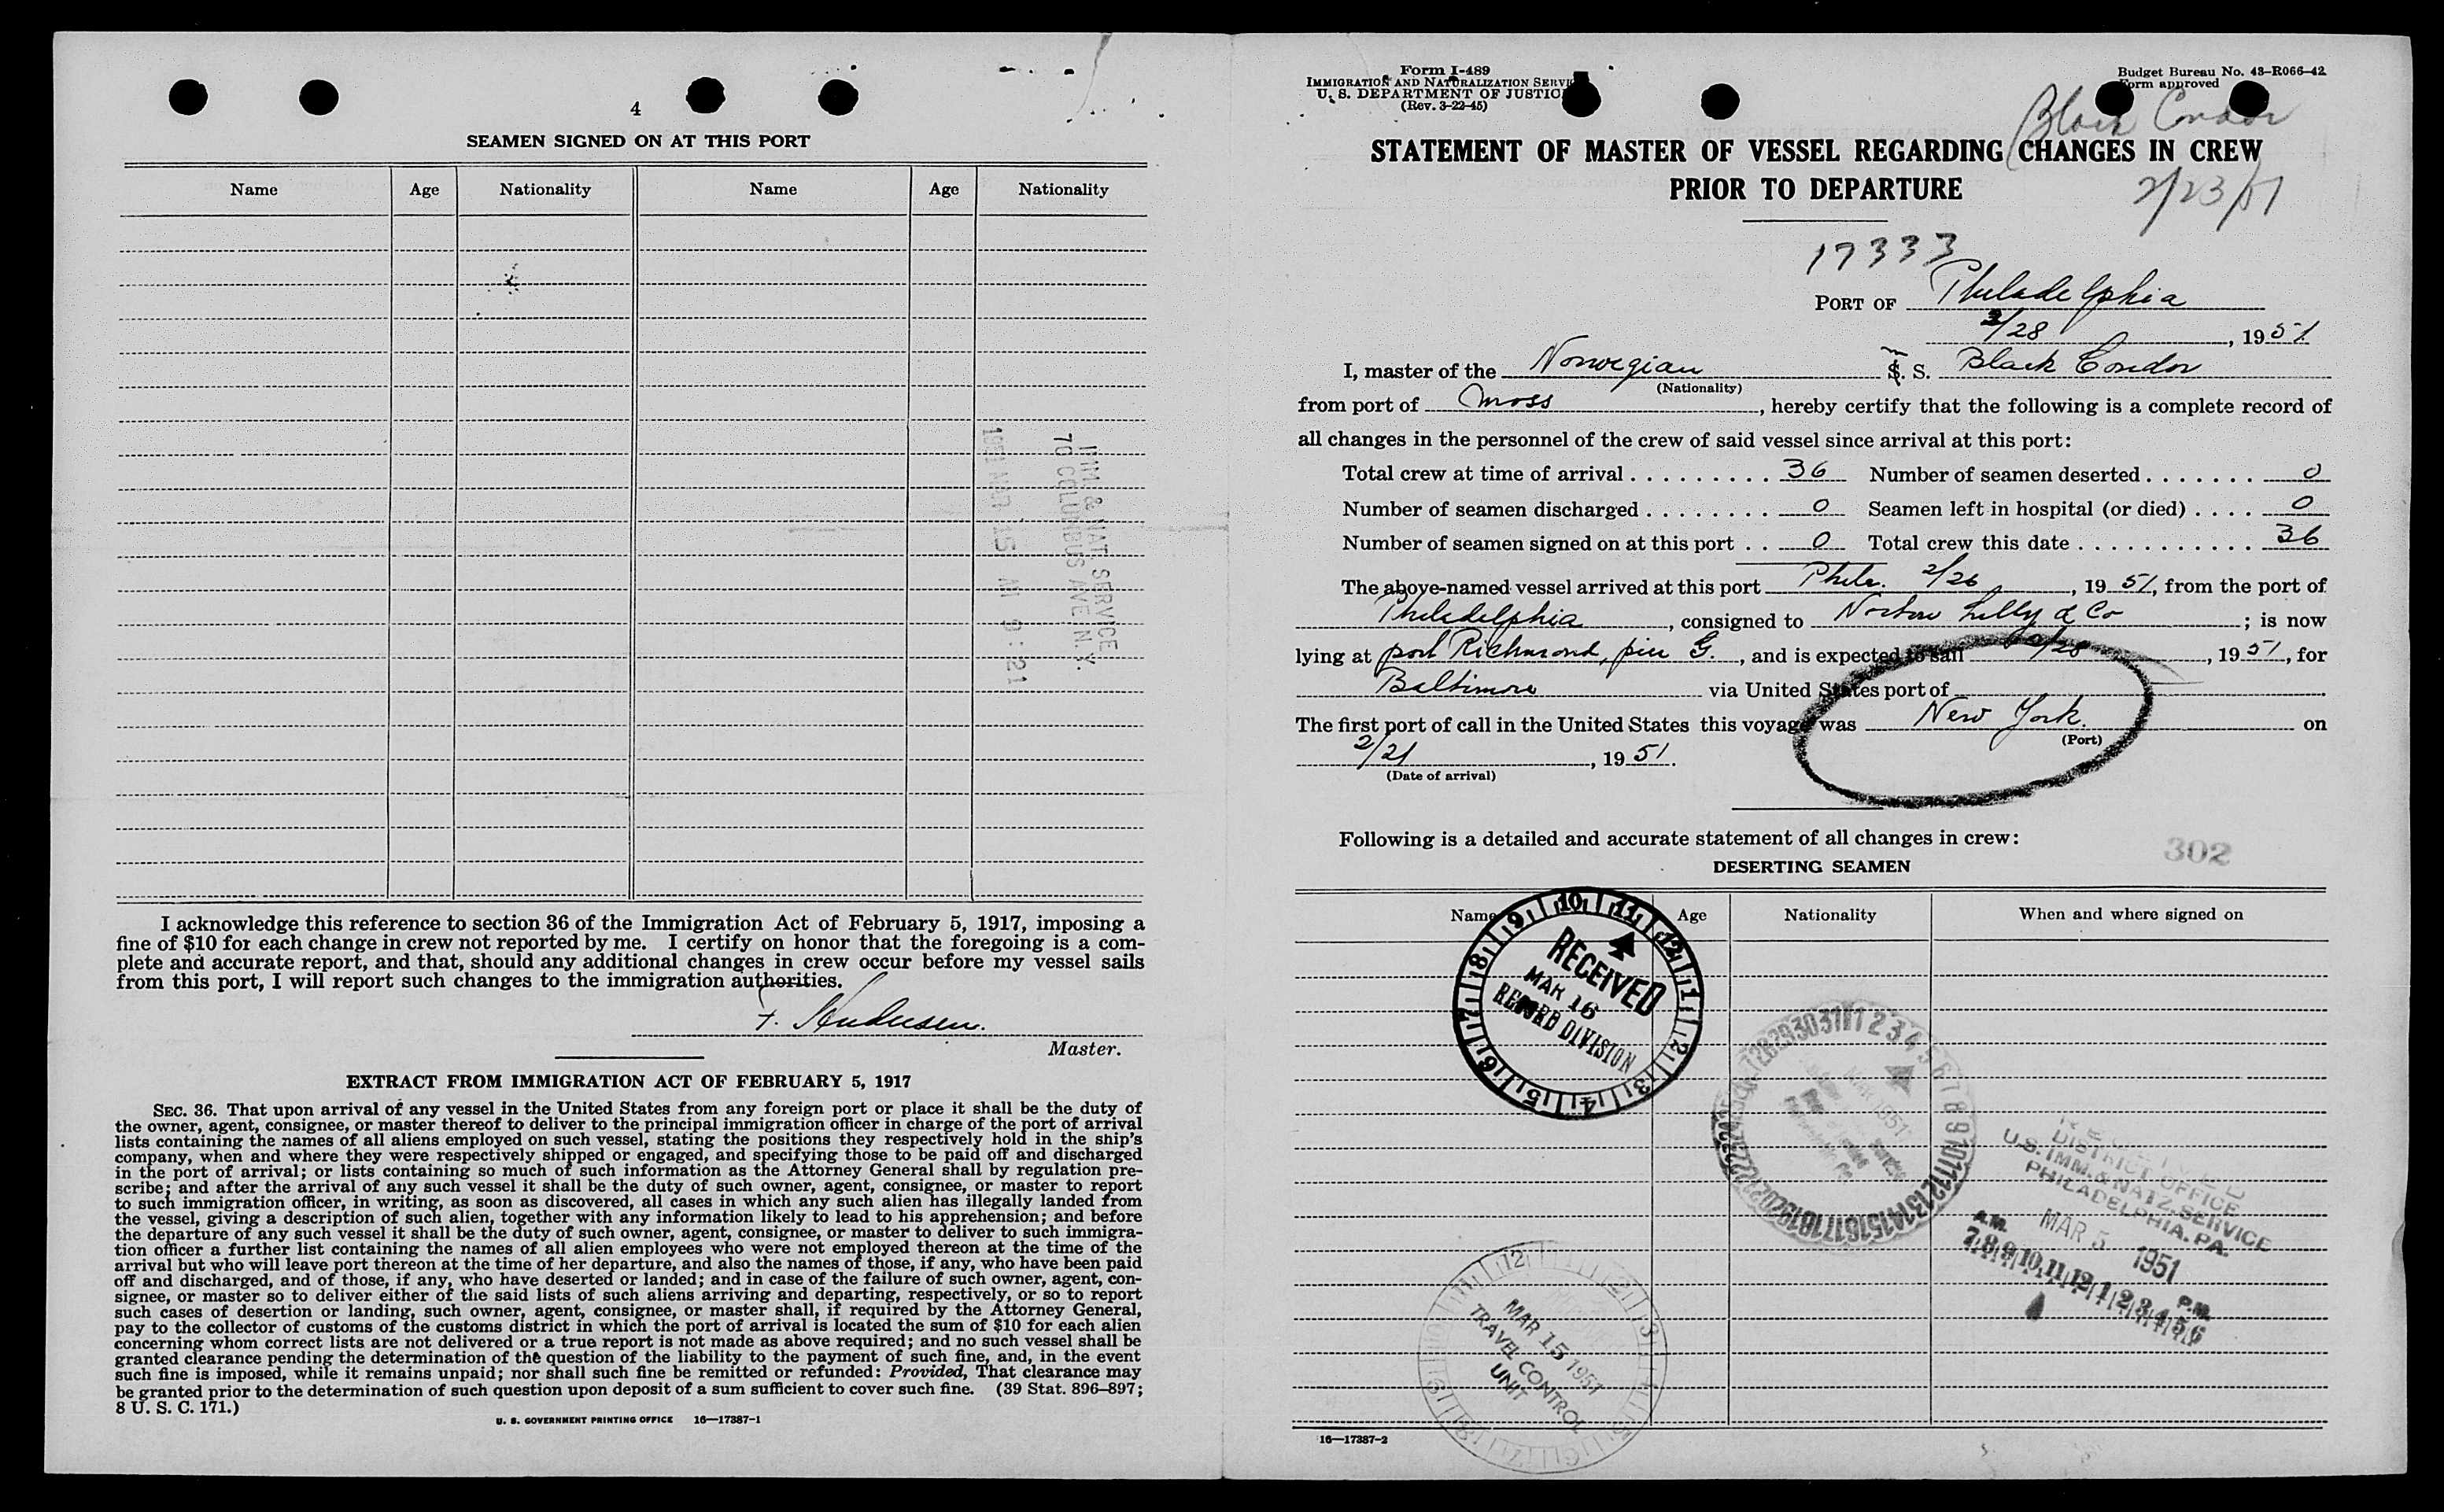 4
SEAMEN SIGNED ON AT THIS PORT
Name Age Nationality Name Age Nationality
IMM. & NAT. SERVICE
70 COLUMBUS AVE. N.Y.
1951 MAR 15 AM 9:21
I acknowledge this reference to section 36 of the Immigration Act of February 5, 1917, imposing a
fine of $10 for each change in crew not reported by me. I certify on honor that the foregoing is a com-
plete and accurate report, and that, should any additional changes in crew occur before my vessel sails
from this port, I will report such changes to the immigration authorities.
F. Andersen.
Master.
EXTRACT FROM IMMIGRATION ACT OF FEBRUARY 5, 1917
SEC. 36. That upon arrival of any vessel in the United States from any foreign port or place it shall be the duty of
the owner, agent, consignee, or master thereof to deliver to the principal immigration officer in charge of the port of arrival
lists containing the names of all aliens employed on such vessel, stating the positions they respectively hold in the ship's
company, when and where they were respectively shipped or engaged, and specifying those to be paid off and discharged
in the port of arrival; or lists containing so much of such information as the Attorney General shall by regulation pre-
scribe; and after the arrival of any such vessel it shall be the duty of such owner, agent, consignee, or master to report
to such immigration officer, in writing, as soon as discovered, all cases in which any such alien has illegally landed from
the vessel, giving a description of such alien, together with any information likely to lead to his apprehension; and before
the departure of any such vessel it shall be the duty of such owner, agent, consignee, or master to deliver to such immigra-
tion officer a further list containing the names of all alien employees who were not employed thereon at the time of the
arrival but who will leave port thereon at the time of her departure, and also the names of those, if any, who have been paid
off and discharged, and of those, if any, who have deserted or landed; and in case of the failure of such owner, agent, con-
signee, or master so to deliver either of the said lists of such aliens arriving and departing, respectively, or so to report
such cases of desertion or landing, such owner, agent, consignee, or master shall, if required by the Attorney General,
pay to the collector of customs of the customs district in which the port of arrival is located the sum of $10 for each alien
concerning whom correct lists are not delivered or a true report is not made as above required; and no such vessel shall be
granted clearance pending the determination of the question of the liability to the payment of such fine, and, in the event
such fine is imposed, while it remains unpaid; nor shall such fine be remitted or refunded: Provided, That clearance may
be granted prior to the determination of such question upon deposit of a sum sufficient to cover such fine. (39 Stat. 896–897;
8 U. S. C. 171.)
U. S. GOVERNMENT PRINTING OFFICE 16—17387-1
Form I-489
IMMIGRATION AND NATURALIZATION
U. S. DEPARTMENT OF JUSTICE
(Rev. 3-22-45)
Budget Bureau No. 43-R066-42
Form approved
Black Condor
2/23/51
STATEMENT OF MASTER OF VESSEL REGARDING CHANGES IN CREW
PRIOR TO DEPARTURE
17333
PORT OF Philadelphia
2/28, 1951
I, master of the Norwegian M. S. Black Condor
(Nationality)
from port of Moss, hereby certify that the following is a complete record of
all changes in the personnel of the crew of said vessel since arrival at this port:
Total crew at time of arrival 36 Number of seamen deserted 0
Number of seamen discharged 0 Seamen left in hospital (or died) 0
Number of seamen signed on at this port 0 Total crew this date 36
The above-named vessel arrived at this port Phila. 2/26, 1951, from the port of
Philadelphia, consigned to Norton Lilly & Co; is now
lying at port Richmond, pier G., and is expected to sail 2/28, 1951, for
Baltimore via United States port of
The first port of call in the United States this voyage was New York. on
(Port)
2/21, 1951.
(Date of arrival)
Following is a detailed and accurate statement of all changes in crew:
302
DESERTING SEAMEN
Name Age Nationality When and where signed on
RECEIVED
MAR 16
RECORD DIVISION
MAR 1951
RECEIVED
DISTRICT OFFICE
U.S. IMM. & NATZ. SERVICE
PHILADELPHIA, PA.
MAR 5 1951
A.M. P.M.
7 8 9 10 11 12 1 2 3 4 5 6
MAR 15 1951
TRAVEL CONTROL
UNIT
16—17387-2